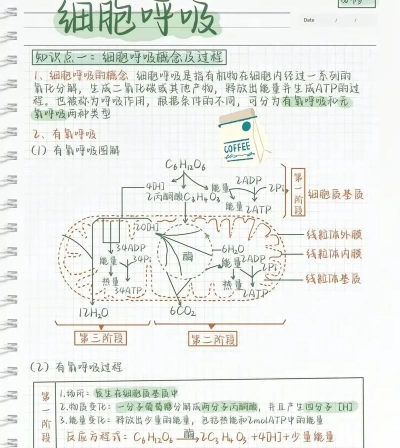 细胞呼吸
Date / /
知识点一：细胞呼吸概念及过程
1、细胞呼吸的概念 细胞呼吸是指有机物在细胞内经过一系列的
氧化分解，生成二氧化碳或其他产物，释放出能量并生成ATP的过
程，也被称为呼吸作用，根据条件的不同，可分为有氧呼吸和无
氧呼吸两种类型
COFFEE
2、有氧呼吸
(1) 有氧呼吸图解
C₆H₁₂O₆
4[H]
2丙酮酸C₃H₄O₃
能量
2ADP
2Pi
能量
2ATP
第一阶段
细胞质基质
20[H]
34ADP
能量
34Pi
热量
34ATP
酶
6H₂O
能量
2ADP
2Pi
热量
2ATP
线粒体外膜
线粒体内膜
线粒体基质
12H₂O
6CO₂
第三阶段
第二阶段
(2) 有氧呼吸过程
第一阶段
1.场所：发生在细胞质基质中
2.物质变化：一分子葡萄糖分解成两分子丙酮酸，并且产生四分子[H]
3.能量变化：释放出少量的能量，包括热能和2molATP中的能量
反应方程式：C₆H₁₂O₆ 酶 2C₃H₄O₃+4[H]+少量能量